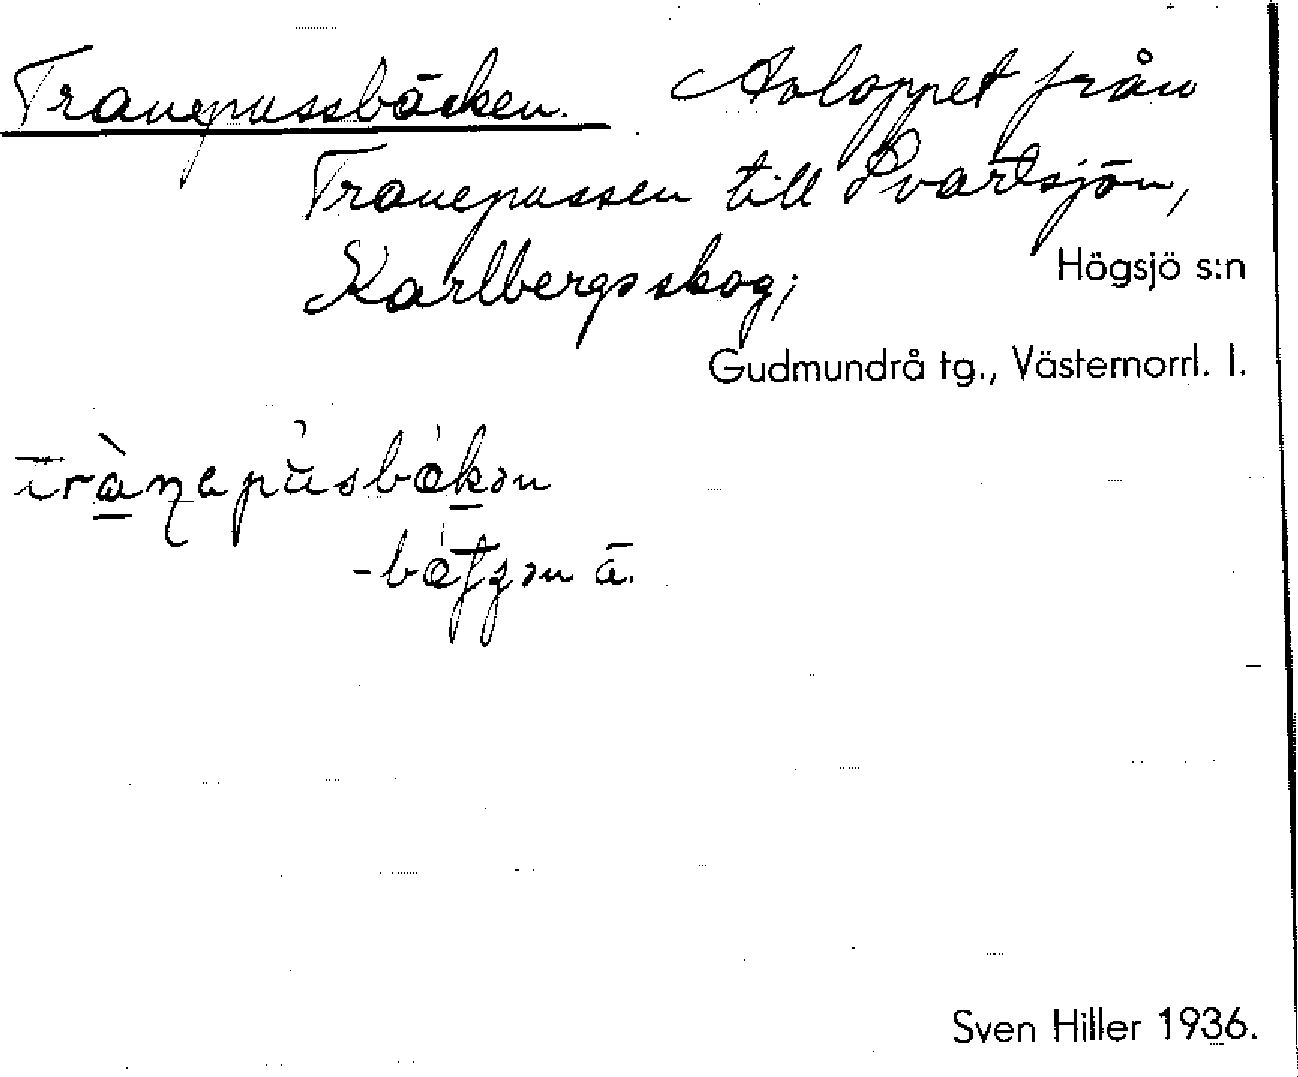 Tranepussbäcken. Avloppet från
Tranepussen till Svartsjön,
Karlbergsskog;
Högsjö s:n
Gudmundrå tg., Västernorrl. l.
-bätjən ä.
Sven Hiller 1936.